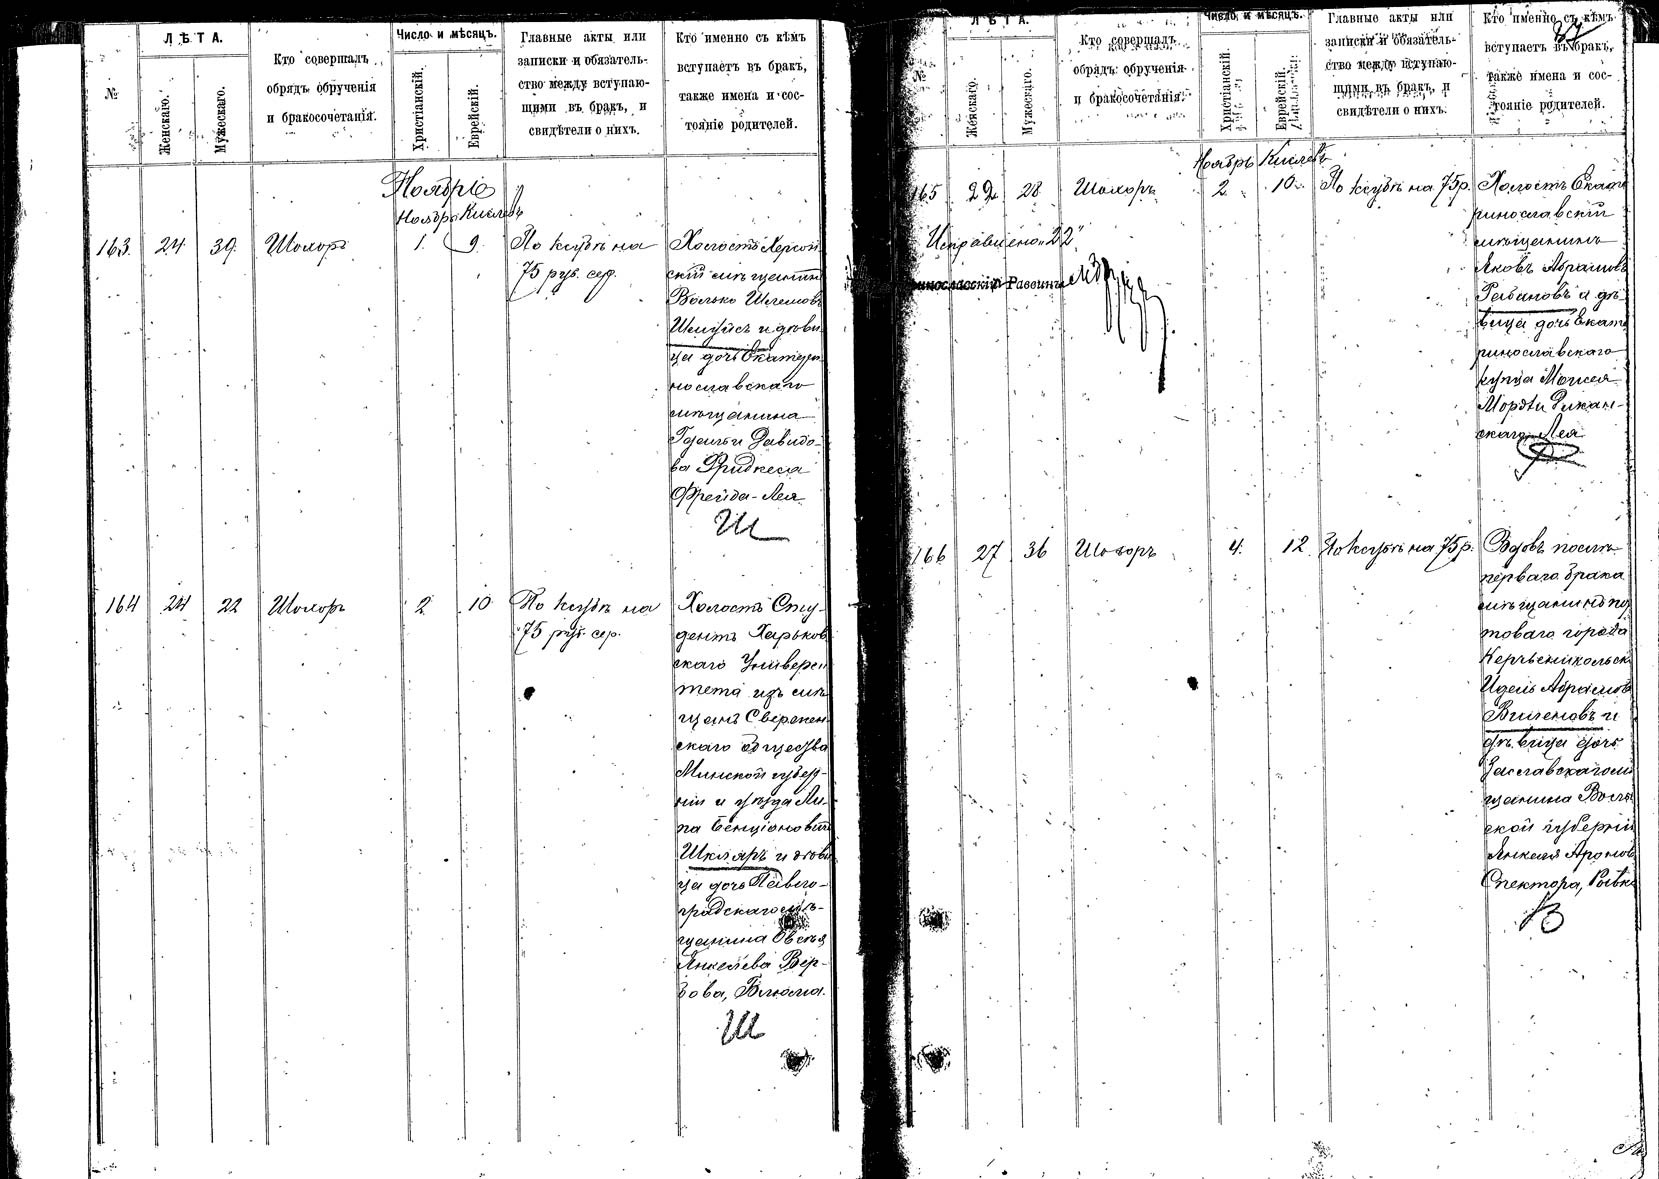 №
ЛѢТА.
Женскаго.
Мужескаго.
Кто совершалъ
обрядъ обрученія
и бракосочетанія.
Число и мѣсяцъ.
Христіанскій.
Еврейскій.
Главные акты или
записки и обязатель-
ство между вступаю-
щими въ бракъ, и
свидѣтели о нихъ.
Кто именно съ кѣмъ
вступаетъ въ бракъ,
также имена и сос-
тояніе родителей.
Ноябрь
Ноябрь Кислевъ
163 24 39 Шохоръ 1. 9.
По ксубѣ на
75 руб. сер.
Холостъ Херсон
скій мѣщанинъ
Волько Шлемовъ
и дѣви
ца дочь Екатери
нославскаго
мѣщанина
Давидо-
ва Фридкеса
Фрейда-Лея
Ш
164 24 22 Шохоръ 2 10
По ксубѣ на
75 руб. сер.
Холостъ Сту-
дентъ Харьков
скаго Универси
тета изъ мѣ
щанъ Свержен
скаго общества
Минской губер-
ніи и уѣзда Ли-
па Бенціоновичъ
Шкляръ и дѣви
ца дочь Павло-
градскаго мѣ-
щанина Овсѣя
Янкелева Вер-
бова, Блюма.
Ш
37
№
ЛѢТА.
Женскаго.
Мужескаго.
Кто совершалъ
обрядъ обрученія
и бракосочетанія.
Число и мѣсяцъ.
Христіанскій.
Еврейскій.
Главные акты или
записки и обязатель-
ство между вступаю-
щими въ бракъ, и
свидѣтели о нихъ.
Кто именно съ кѣмъ
вступаетъ въ бракъ,
также имена и сос-
тояніе родителей.
Ноябрь Кислевъ
165 22 28 Шохоръ 2 10 По ксубѣ на 75 р.
Исправлено "22"
инославскій Раввинъ
Холостъ Екате
ринославскій
мѣщанинъ
Яковъ Абрамовъ
Рабиновъ и дѣ-
вица дочь Екате
ринославскаго
купца Моисея
Мордки Дикан-
скаго Лея
Р
166 27 36 Шохоръ 4. 12. По ксубѣ на 75 р.
Вдовъ послѣ
перваго брака
мѣщанинъ пор
товаго города
Керчьеникольск
Идель Абрамовъ
Виленовъ и
дѣвица дочь
Заславскаго мѣ
щанина Волын
ской губерніи
Янкеля Аронов
Спектора, Ривка
В